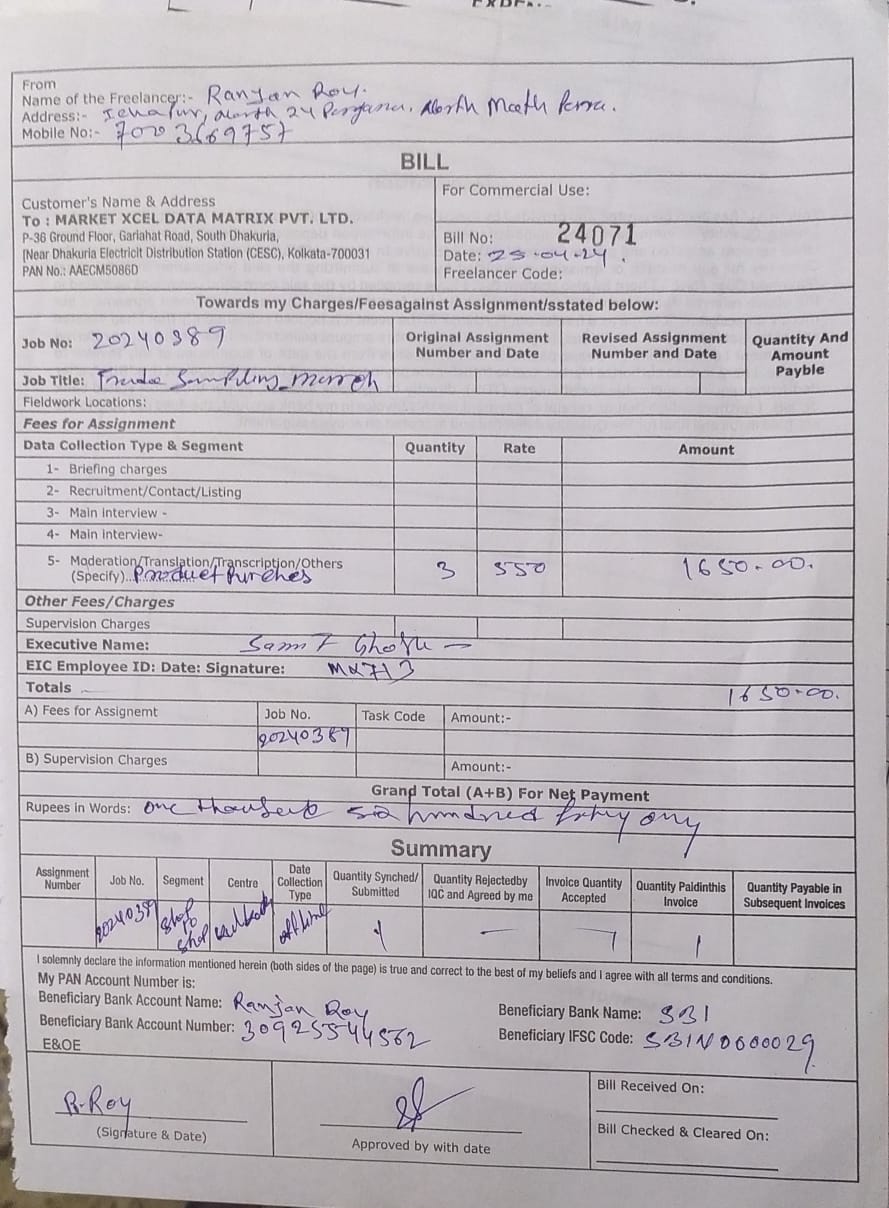 From
Name of the Freelancer:- Ranjan Roy.
Address:- Ichapur, North 24 Pargana, North
Mobile No:- 7003669757
BILL
Customer's Name & Address
To : MARKET XCEL DATA MATRIX PVT. LTD.
P-36 Ground Floor, Gariahat Road, South Dhakuria,
[Near Dhakuria Electricit Distribution Station (CESC), Kolkata-700031
PAN No.: AAECM5086D
For Commercial Use:
Bill No: 24071
Date: 25.04.24.
Freelancer Code:
Towards my Charges/Feesagainst Assignment/sstated below:
Job No: 20240389
Original Assignment Number and Date
Revised Assignment Number and Date
Quantity And Amount Payble
Job Title: Sampling
Fieldwork Locations:
Fees for Assignment
Data Collection Type & Segment Quantity Rate Amount
1- Briefing charges
2- Recruitment/Contact/Listing
3- Main interview -
4- Main interview-
5- Moderation/Translation/Transcription/Others
(Specify)..Product Purches 3 550 1650.00.
Other Fees/Charges
Supervision Charges
Executive Name:
EIC Employee ID: Date: Signature: MX713
Totals 1650.00.
A) Fees for Assignemt Job No. Task Code Amount:-
20240389
B) Supervision Charges Amount:-
Grand Total (A+B) For Net Payment
Rupees in Words: One thousand six hundred only
Summary
Assignment Number Job No. Segment Centre Date Collection Type Quantity Synched/ Submitted Quantity Rejectedby IQC and Agreed by me Invoice Quantity Accepted Quantity Paldinthis Invoice Quantity Payable in Subsequent Invoices
20240389 Shop to Shop offline
I solemnly declare the information mentioned herein (both sides of the page) is true and correct to the best of my beliefs and I agree with all terms and conditions.
My PAN Account Number is:
Beneficiary Bank Account Name: Ranjan Roy
Beneficiary Bank Name: SBI
Beneficiary Bank Account Number: 30925544562
Beneficiary IFSC Code: SBIN0000029
E&OE
R.Roy
(Signature & Date)
Approved by with date
Bill Received On:
Bill Checked & Cleared On: